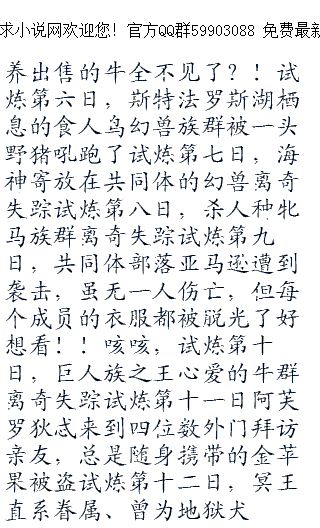 求小说网欢迎您！官方QQ群59903088 免费最新
养出售的牛全不见了？！试
炼第六日，斯特法罗斯湖栖
息的食人鸟幻兽族群被一头
野猪吼跑了试炼第七日，海
神寄放在共同体的幻兽离奇
失踪试炼第八日，杀人种牝
马族群离奇失踪试炼第九
日，共同体部落亚马逊遭到
袭击，虽无一人伤亡，但每
个成员的衣服都被脱光了好
想看！！咳咳，试炼第十
日，巨人族之王心爱的牛群
离奇失踪试炼第十一日阿芙
罗狄忒来到四位数外门拜访
亲友，总是随身携带的金苹
果被盗试炼第十二日，冥王
直系眷属、曾为地狱犬